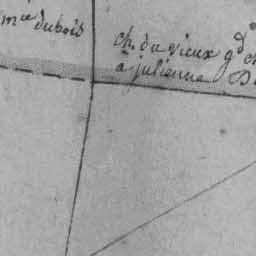 mce dubois
ch. du vieux gd ch
a julienne